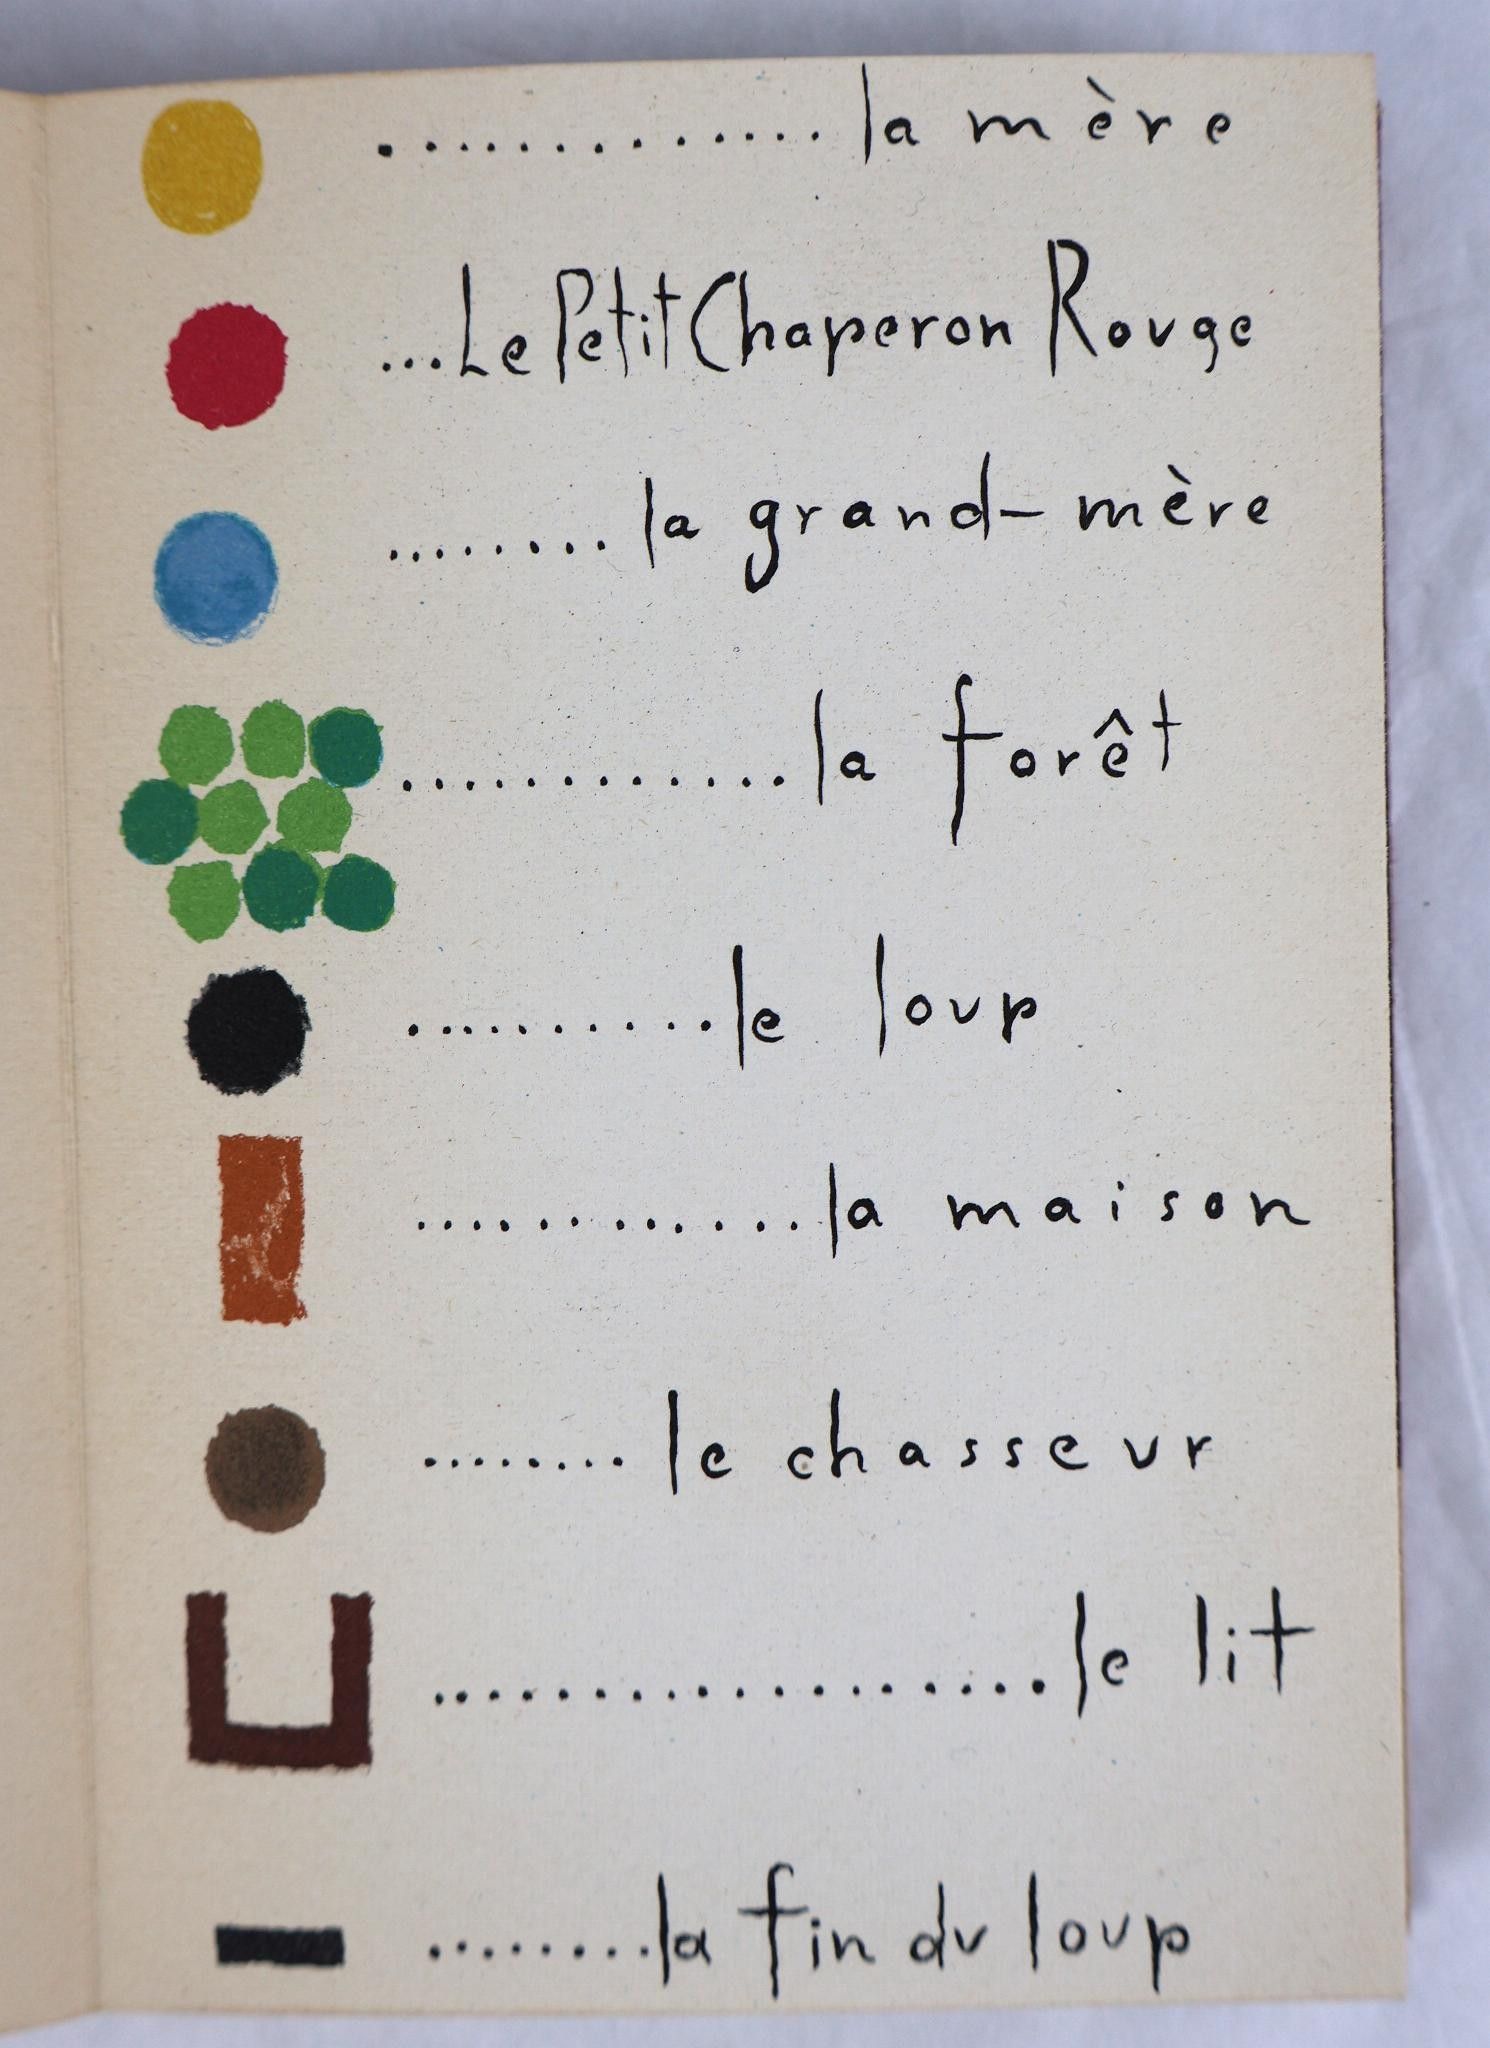 ............. la mère
...Le Petit Chaperon Rouge
........ la grand-mère
............. la forêt
.......... le loup
............ la maison
........ le chasseur
.................. le lit
......... la fin du loup